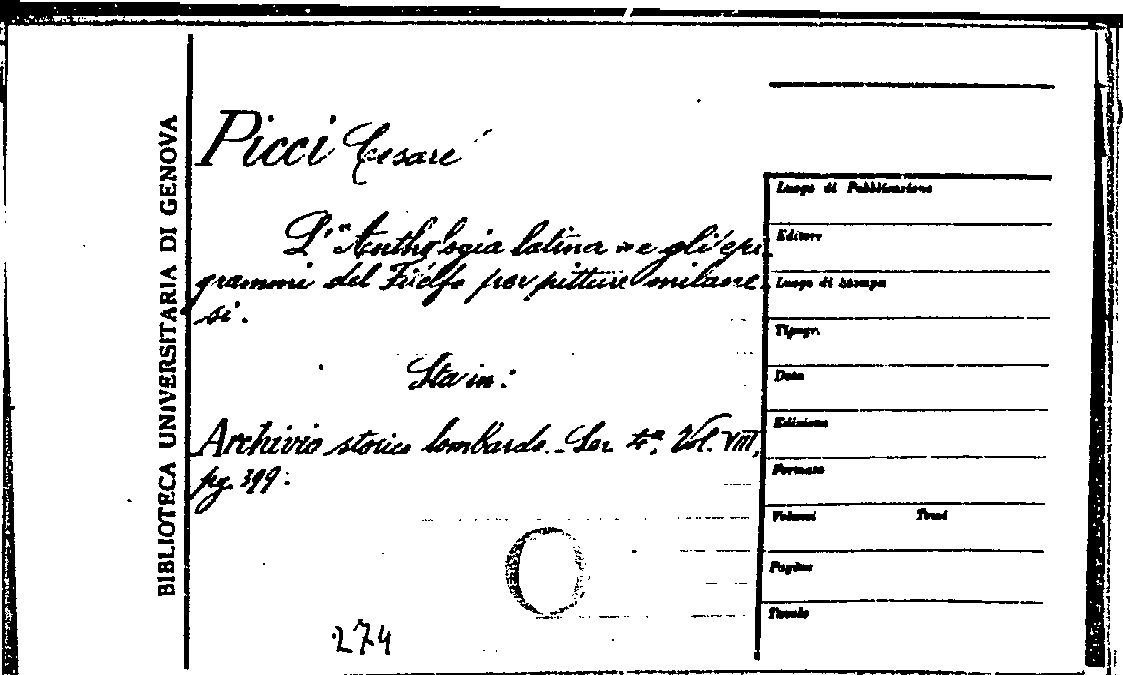 BIBLIOTECA UNIVERSITARIA DI GENOVA
Picci Cesare
L'"Anthologia latina" e gli epi-
grammi del Filelfo per pitture milane-
si.
Sta in:
Archivio storico lombardo. Ser. 4ª, Vol. VIII,
pg. 399.
274
Luogo di Pubblicazione
Editore
Luogo di Stampa
Tipogr.
Data
Edizione
Formato
Volumi Tomi
Pagine
Tavole